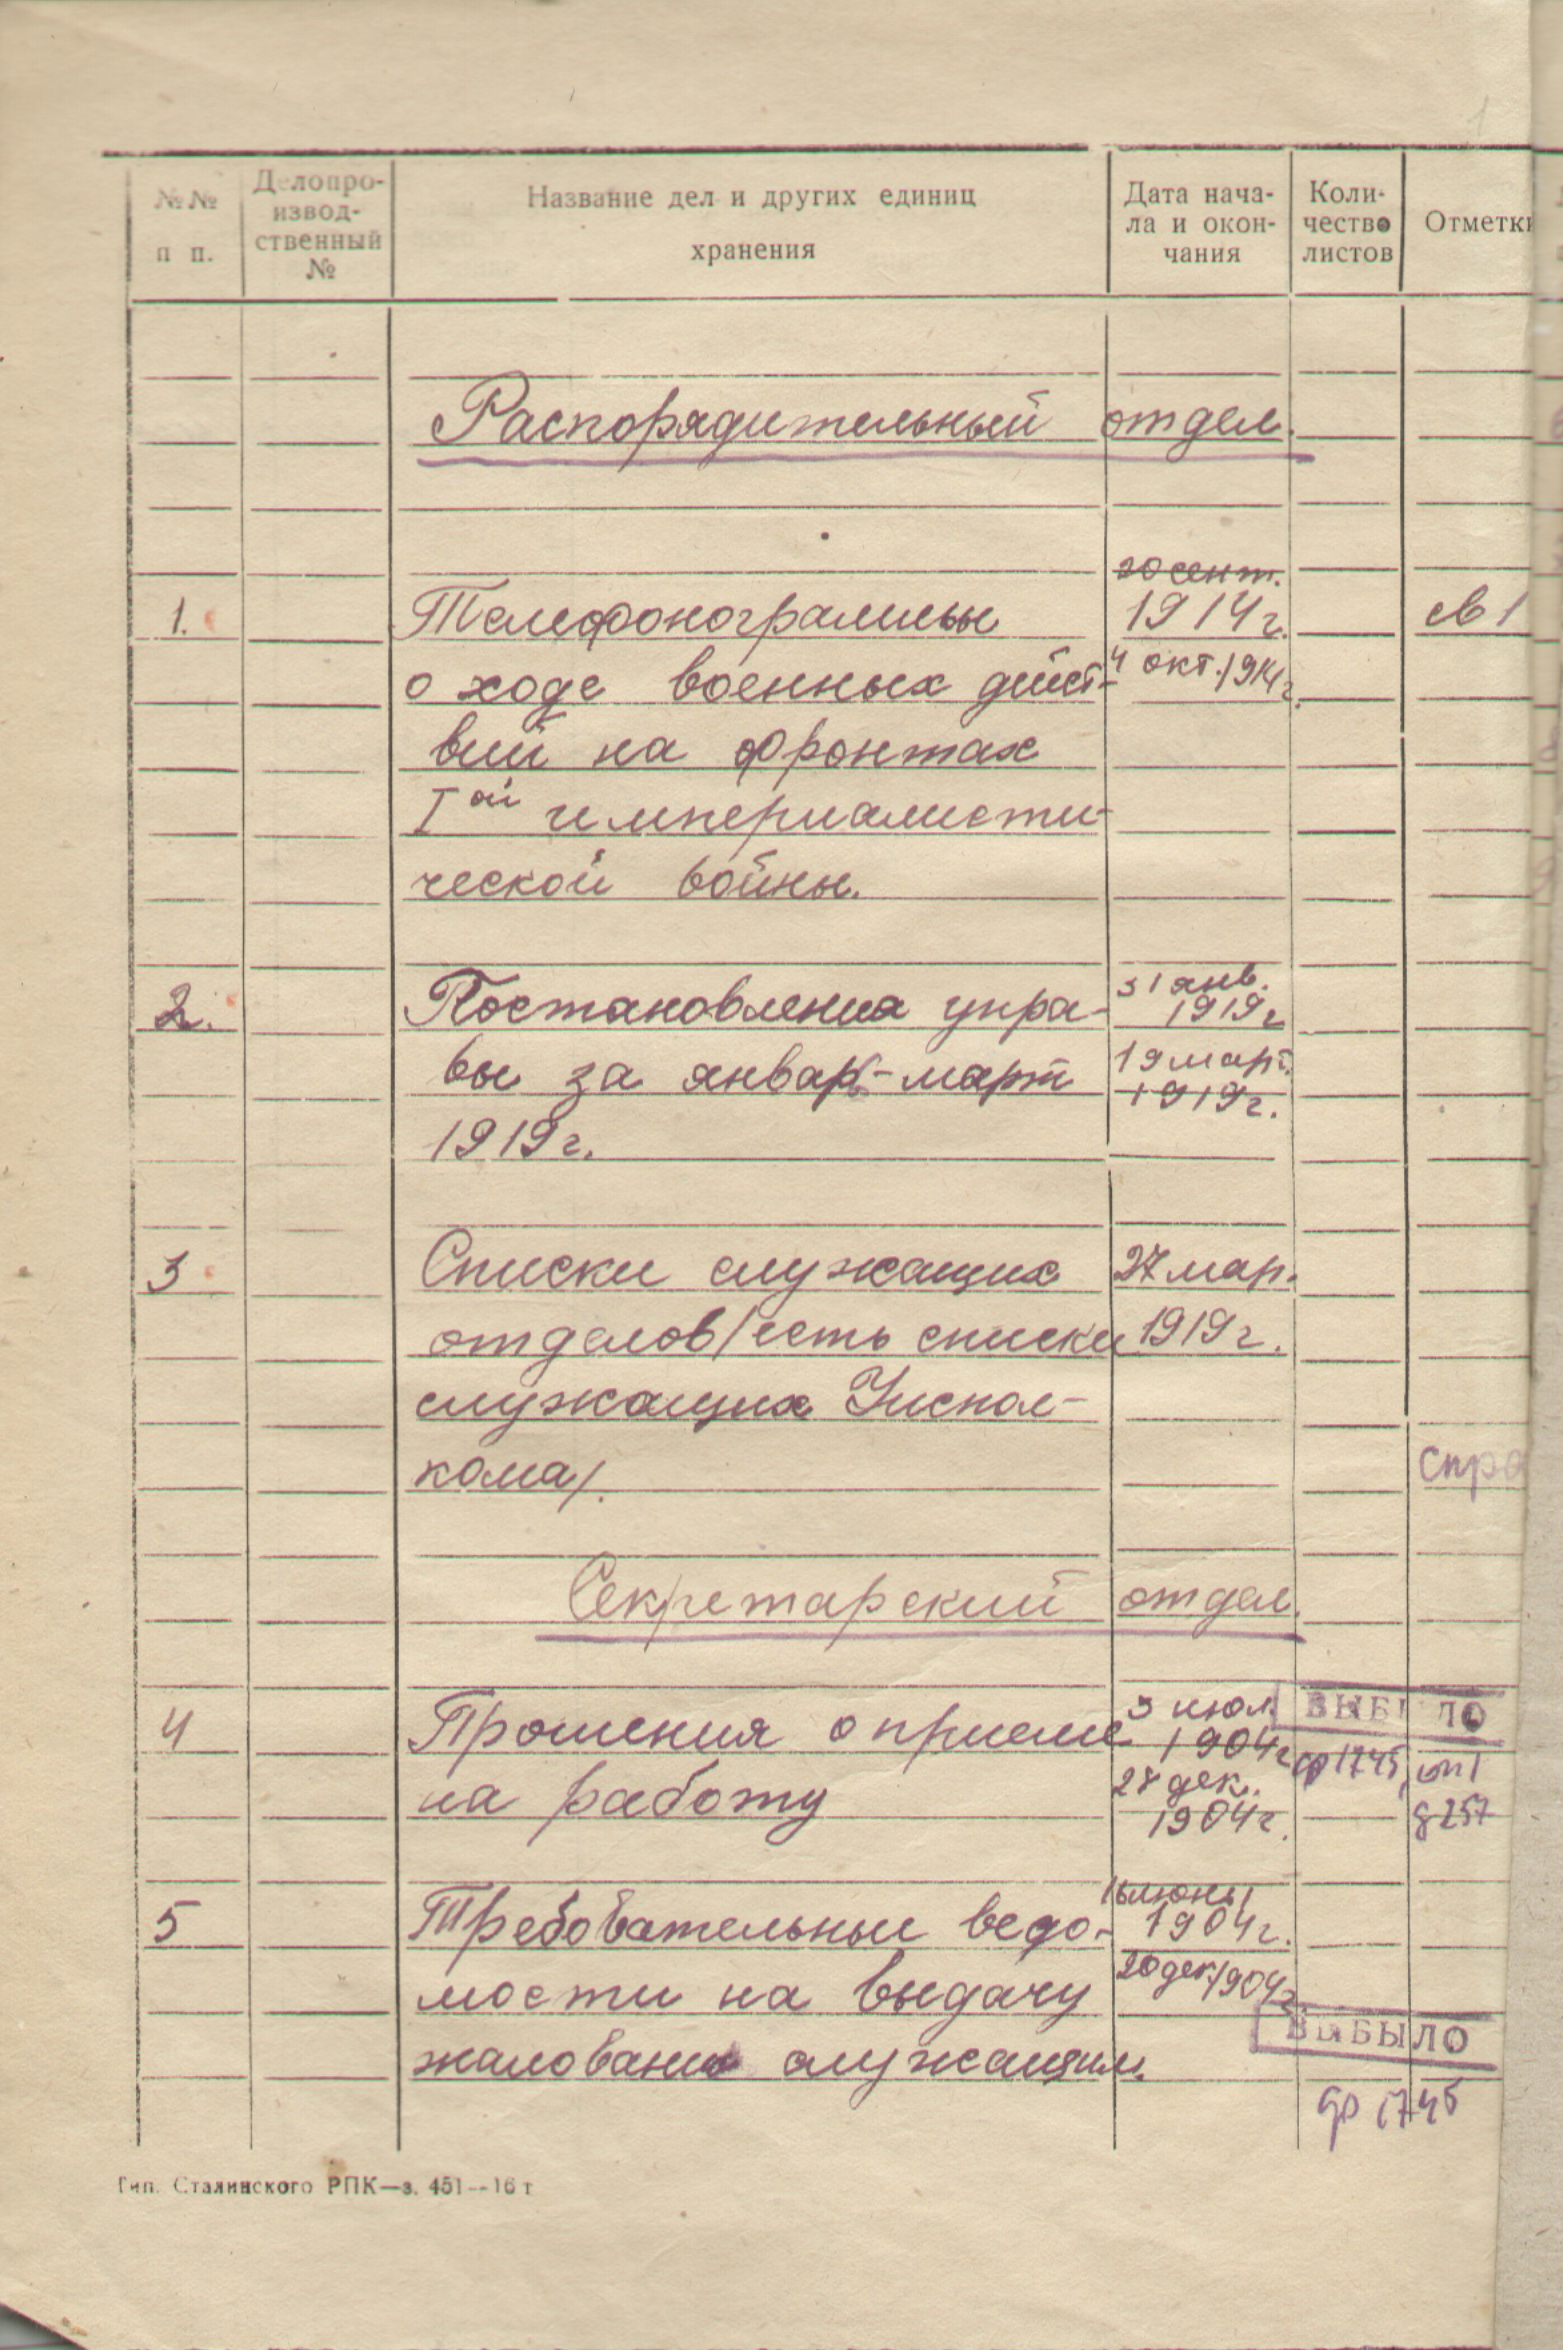 1
№№ п п.
Делопро-
извод-
ственный
№
Название дел и других единиц
хранения
Дата нача-
ла и окон-
чания
Коли-
чество
листов
Отметки
Распорядительный отдел.
20 сент.
1. Телефонограммы 1914 г. св 1
о ходе военных дейст- 4 окт. 1914 г.
вий на фронтах
I ой империалисти-
ческой войны.
31 янв.
2. Постановления упра- 1919 г
вы за январь-март 19 март.
1919 г.
1919 г.
3 Списки служащих 27 мар.
отделов /есть списки 1919 г.
служащих Уиспол-
кома/.
Секретарский отдел.
3 июл. ВЫБЫЛО
4 Прошения о приеме 1904 г ф 1745, оп 1
на работу 28 дек. д 257
1904 г.
5 Требовательные ведо- 1904 г.
мости на выдачу 20 дек. 1904 г.
ВЫБЫЛО
жалования служащим.
ф 1745
Тип. Сталинского РПК—з. 451—16 т